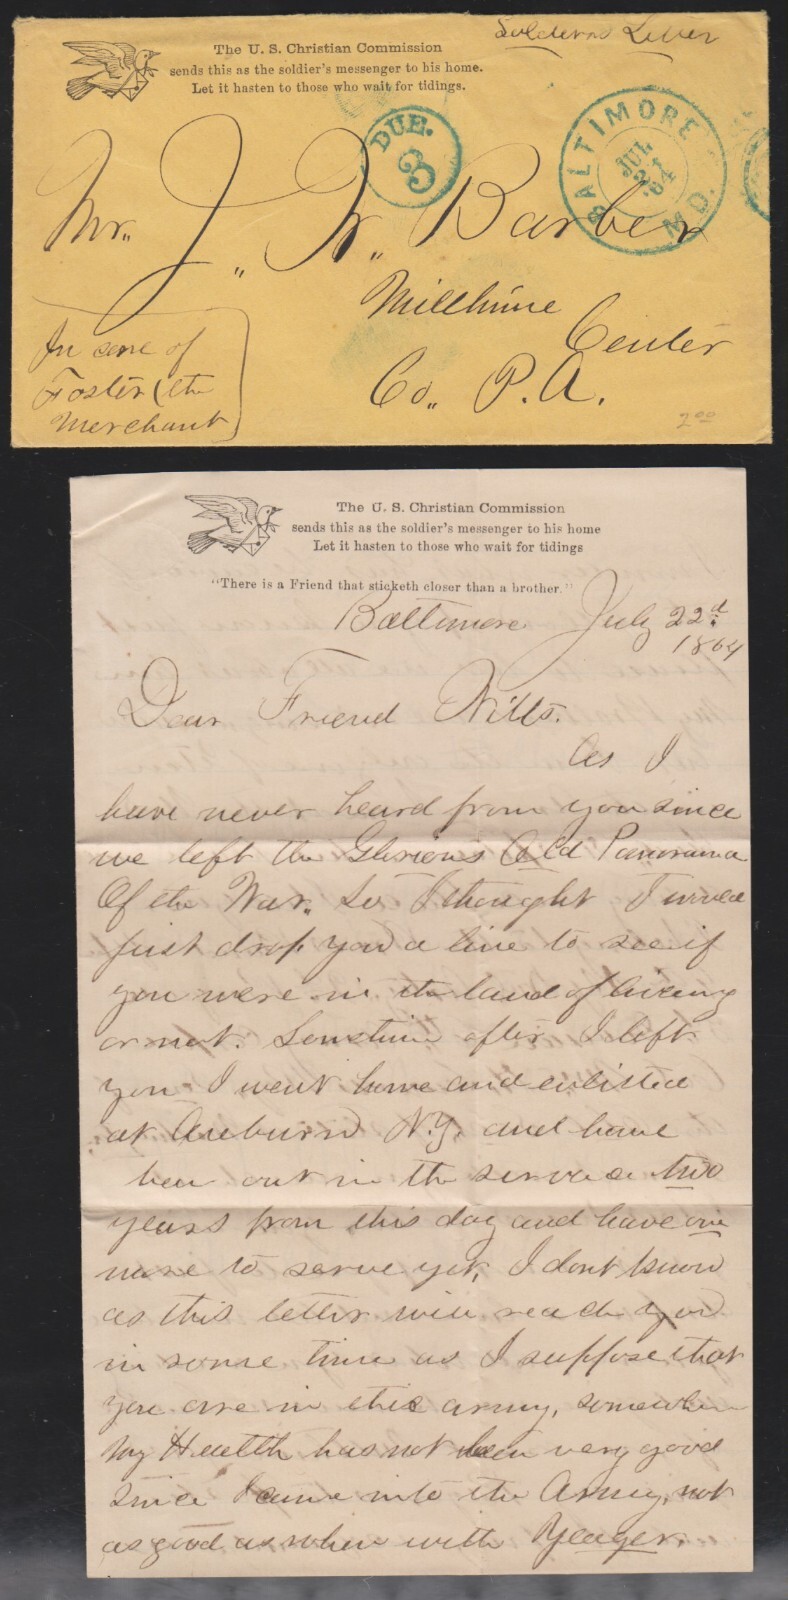 Soldiers Letter
The U. S. Christian Commission
sends this as the soldier's messenger to his home.
Let it hasten to those who wait for tidings.
DUE.
3
BALTIMORE
JUL
21
'64
MD.
Mr. J. W. Barber
Millhime
Center
Co. P.A.
In care of
Foster (the
Merchant)
2 00
The U. S. Christian Commission
sends this as the soldier's messenger to his home
Let it hasten to those who wait for tidings
"There is a Friend that sticketh closer than a brother."
Baltimore July 22d
1864
Dear Friend Willis.
As I
have never heard from you since
we left the Glorious Old Panorama
Of the War. So I thought I would
just drop you a line to see if
you were in the land of living
or not. Sometime after I left
you I went home and enlisted
at Auburn N.Y. and have
been out in the service two
years from this day and have one
more to serve yet, I dont know
as this letter will reach you
in some time as I suppose that
you are in this army, somewhere
My Health has not been very good
since I came into the Army, not
as good as when with Yeager.